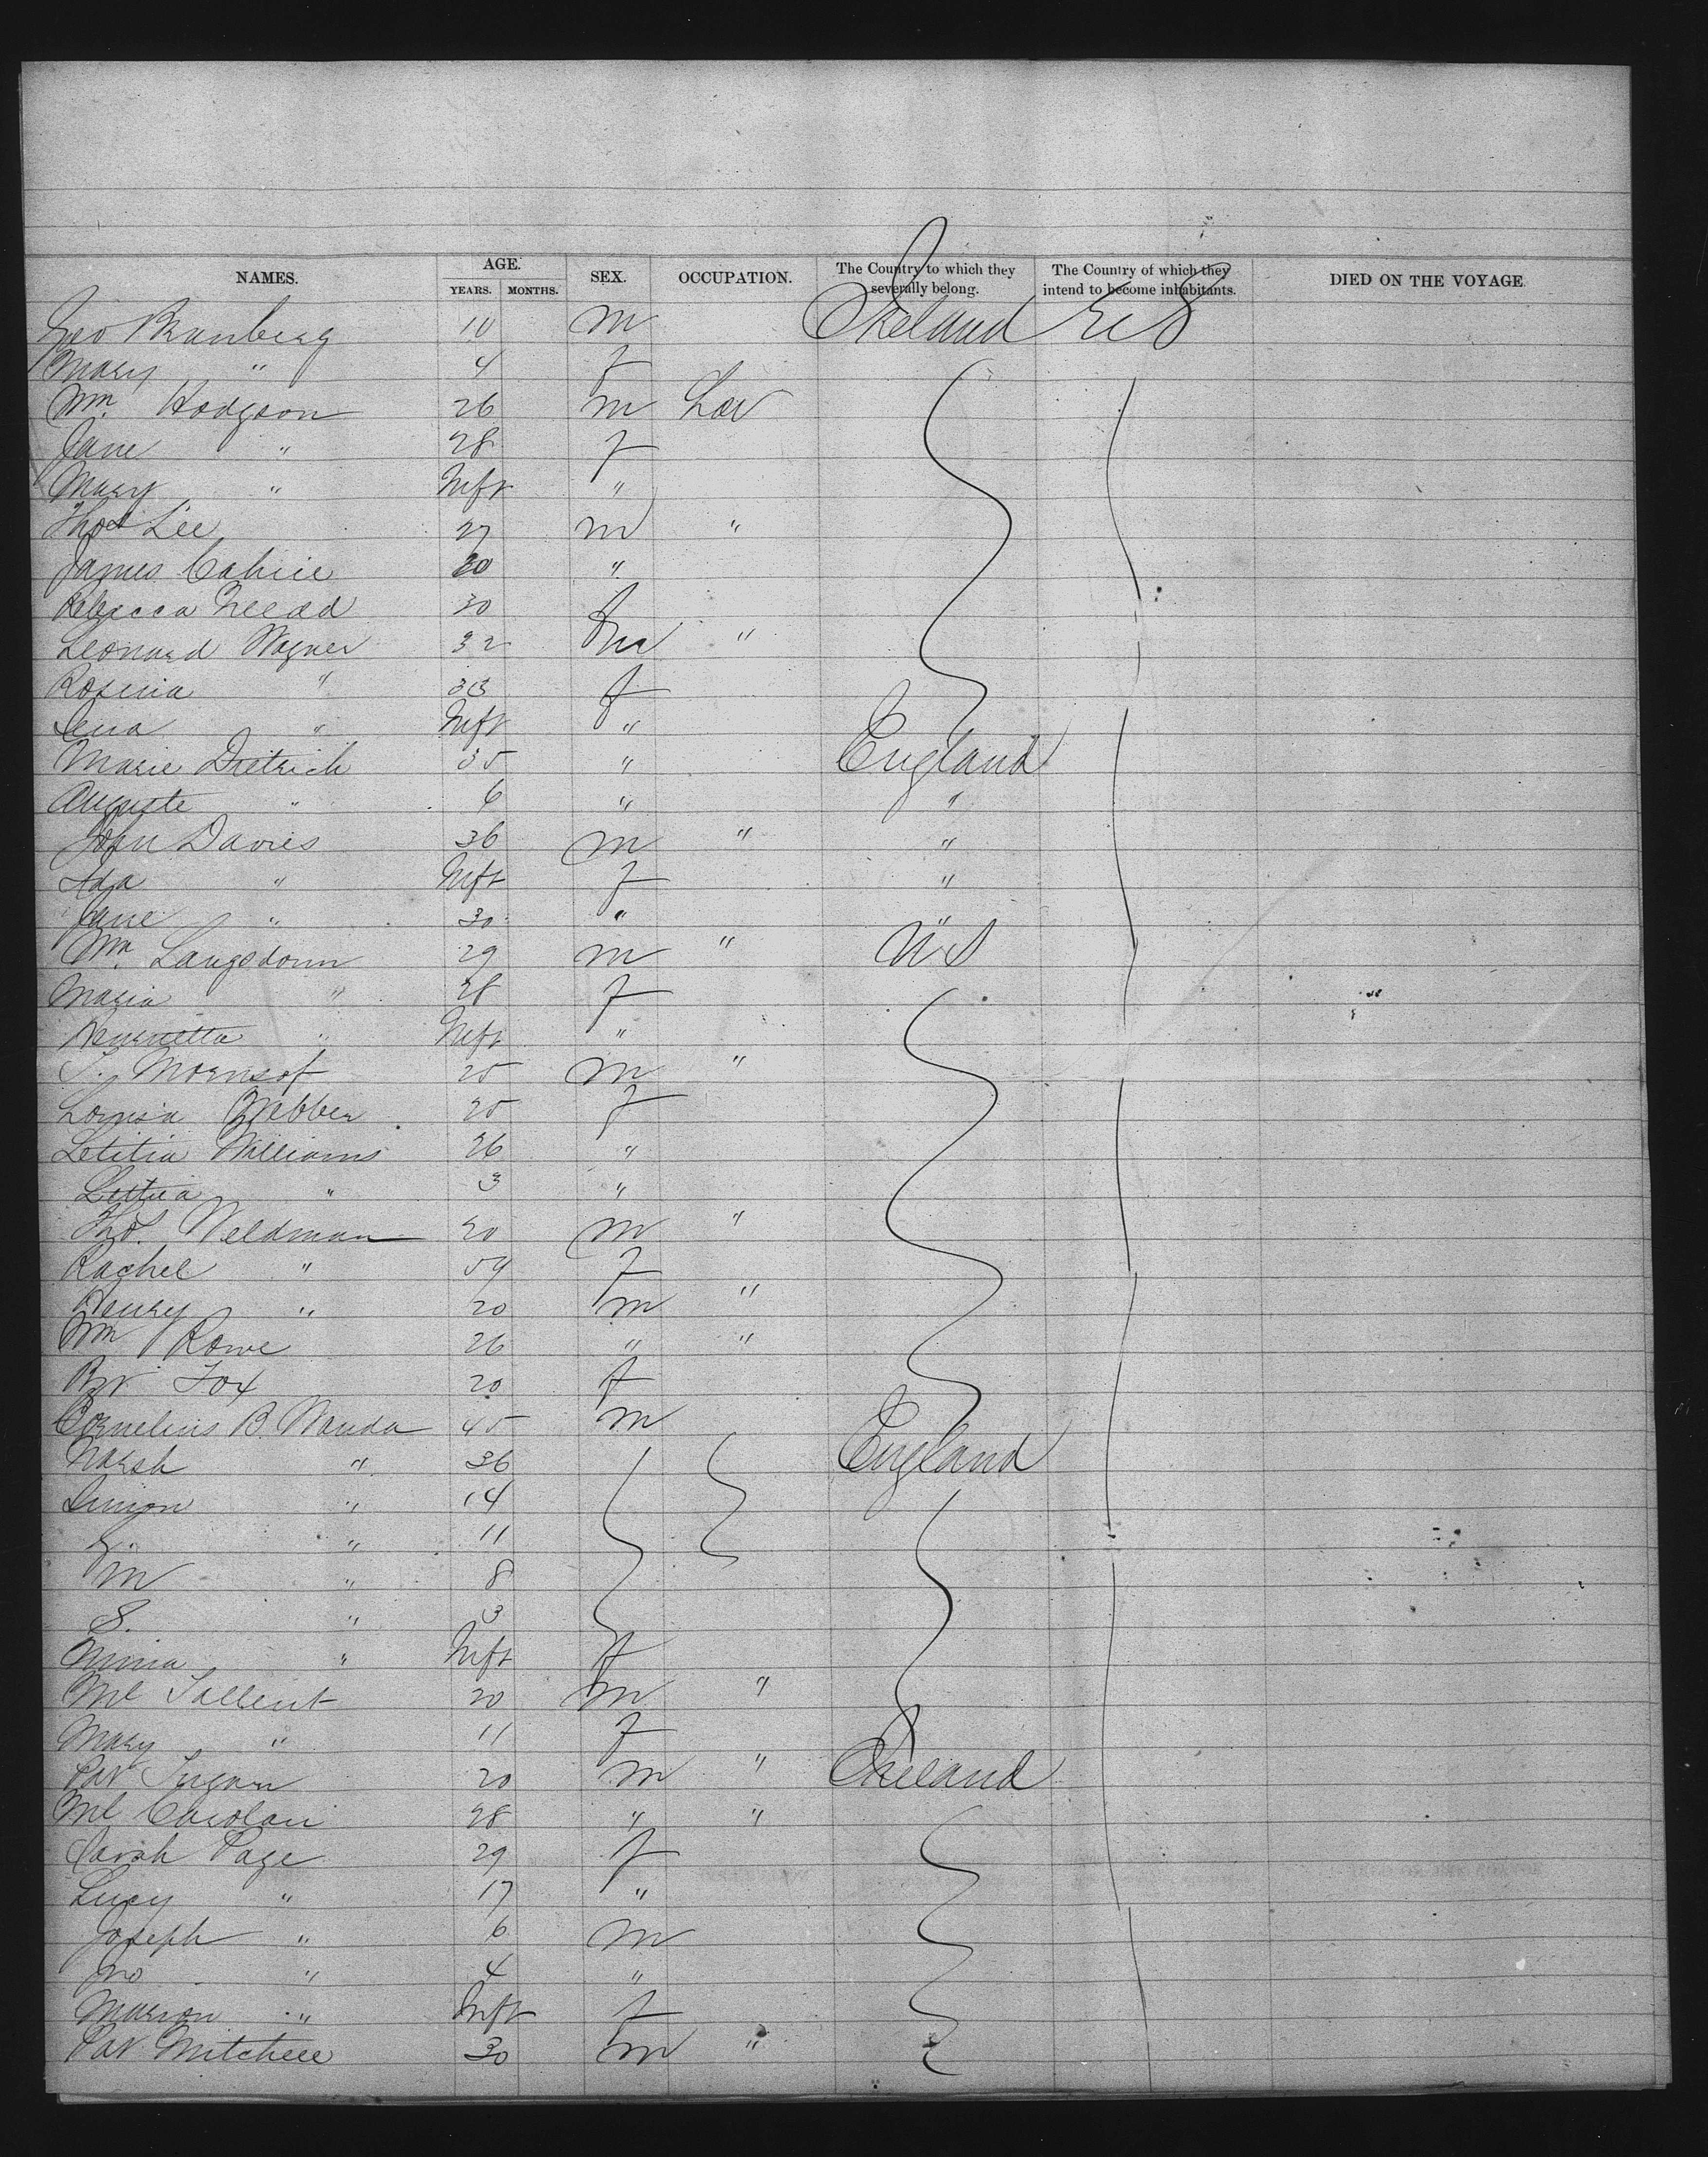 NAMES. AGE. YEARS. MONTHS. SEX. OCCUPATION. The Country to which they severally belong. The Country of which they intend to become inhabitants. DIED ON THE VOYAGE.
Geo Branberg 10 m Ireland U S
Mary " 4 f
Wm Hodgson 26 m Lab
Jane " 28 f
Mary " Inft "
Thos Lee 27 m "
James Cahice 20 "
Rebecca 30 f
Leonard Wagner 32 m "
Rosina " 33 f
Lena " Inft "
Marie Dietrich 35 " England
Auguste " 6 " "
John Davies 36 m " "
Ada " Inft f "
Jane " 30 " "
Wm Langsdown 29 m " U S
Maria " 28 f
Henrietta " Inft "
25 m "
Louisa Webber 25 f
Letitia Williams 26 "
Lettua " 3 "
Thos. Weldman 20 m "
Rachel " 59 f
Henry " 20 m "
Wm Rowe 26 " "
Fox 20 f
Cornelius B. Wanda 45 m
" 36 England
Simon " 14
" 11
M " 8
S. " 3
" Inft f
Ml Tallent 20 m "
Mary " 11 f
Pat 20 m " Ireland
Ml Carolan 28 " "
Sarah Page 29 f
Lucy " 17 "
Joseph " 6 m
Jno " 4 "
Marion " Inft f
Pat Mitchell 30 m "